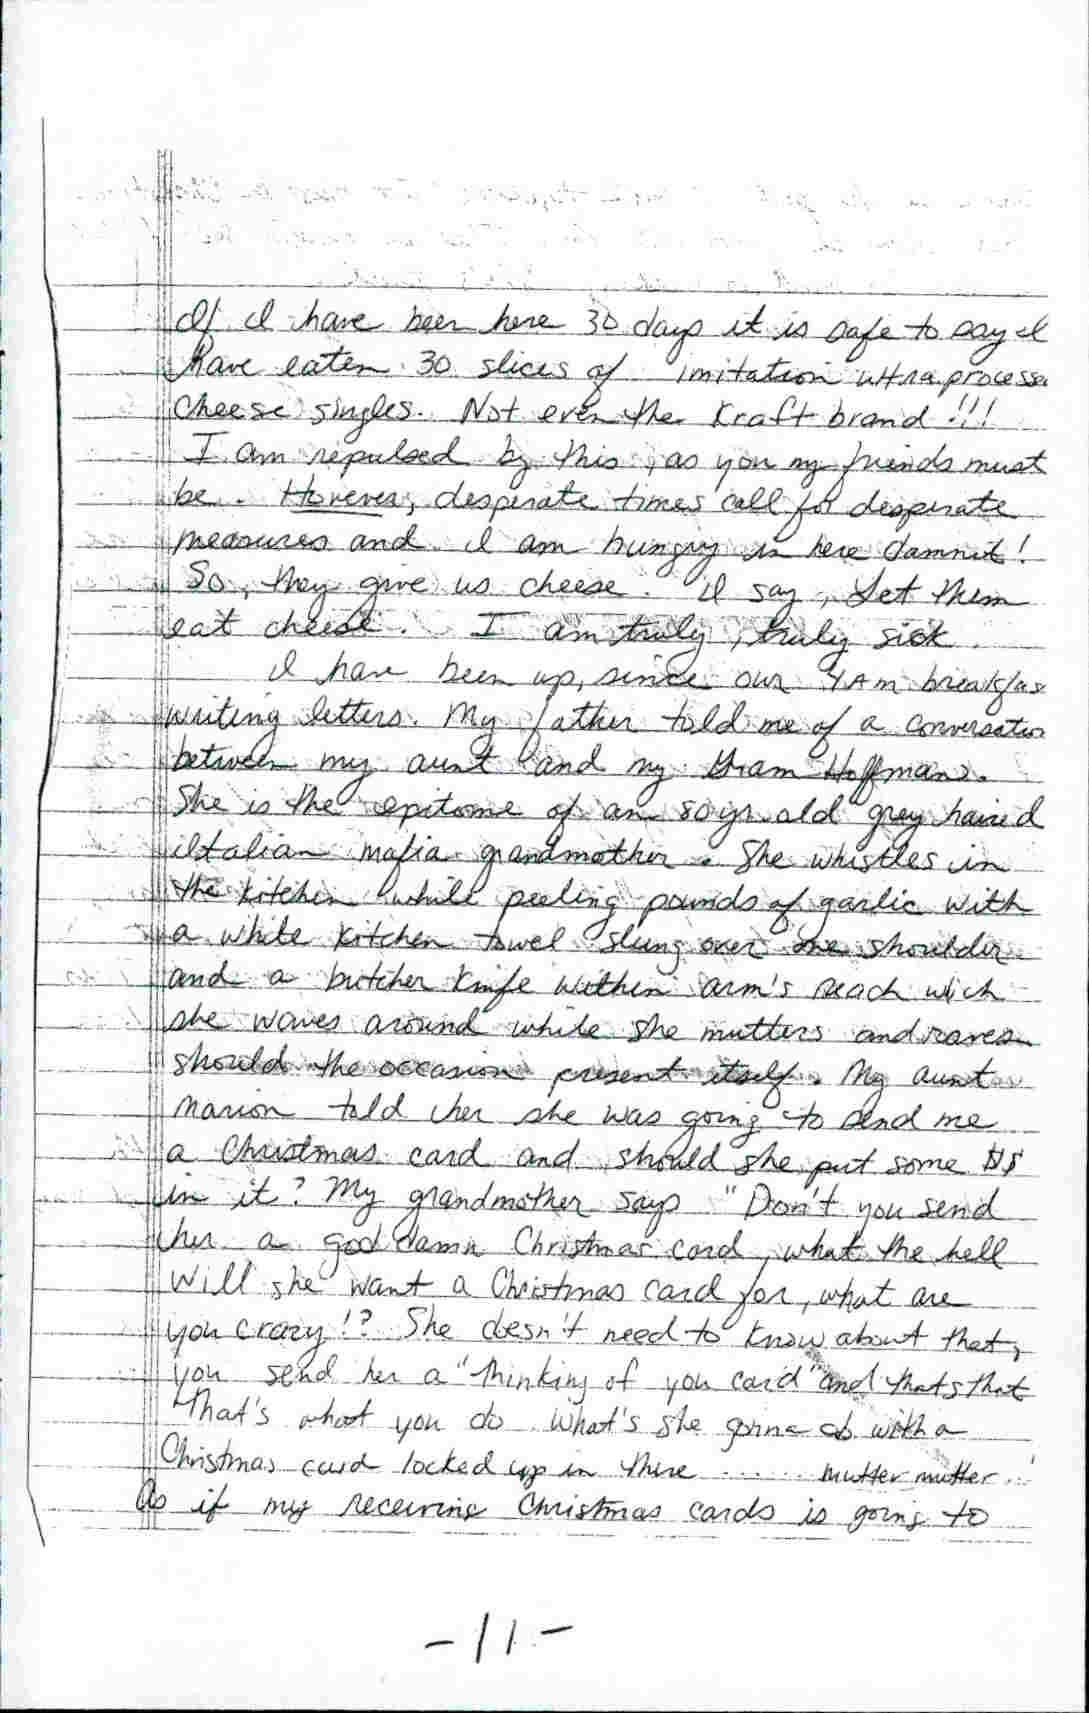 If I have been here 30 days it is safe to say I
have eaten 30 slices of imitation ultra processe
cheese singles. Not even the Kraft brand!!!
I am repulsed by this, as you my friends must
be. However, desperate times call for desperate
measures and I am hungry in here damnit!
So, they give us cheese. I say, Let them
eat cheese. I am truly, truly sick.
I have been up, since our 4AM breakfas
writing letters. My father told me of a conversation
between my aunt and my Gram Hoffman.
She is the epitome of an 80 yr old grey haired
Italian mafia grandmother. She whistles in
the kitchen while peeling pounds of garlic with
a white kitchen towel slung over one shoulder
and a butcher knife within arm's reach wich
she waves around while she mutters and raves
should the occasion present itself. My aunt
Marion told her she was going to send me
a Christmas card and should she put some $$
in it? My grandmother says "Don't you send
her a god damn Christmas card, what the hell
will she want a Christmas card for, what are
you crazy!? She doesn't need to know about that,
you send her a "thinking of you card" and thats that
That's what you do. What's she gonna do with a
Christmas card locked up in there ...... mutter mutter...
As if my receiving Christmas cards is going to
-11-